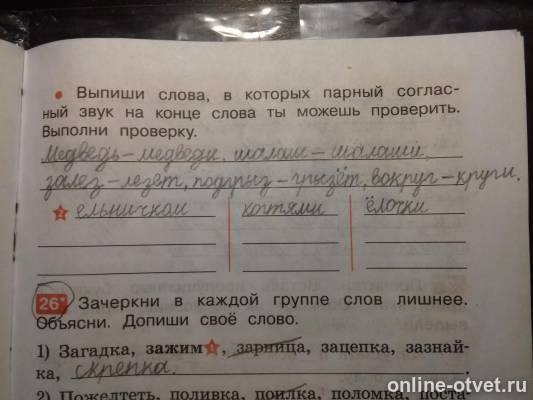 • Выпиши слова, в которых парный соглас-
ный звук на конце слова ты можешь проверить.
Выполни проверку.
Медведь – медведи, шалаш – шалаши,
залез – лезет, подгрыз – грызёт, вокруг – круги.
2 ельничком когтями ёлочки
26* Зачеркни в каждой группе слов лишнее.
Объясни. Допиши своё слово.
1) Загадка, зажим1, зарница, зацепка, зазнай-
ка, скрепка.
2) Пожелтеть, поливка, поилка, поломка, поста-
online-otvet.ru